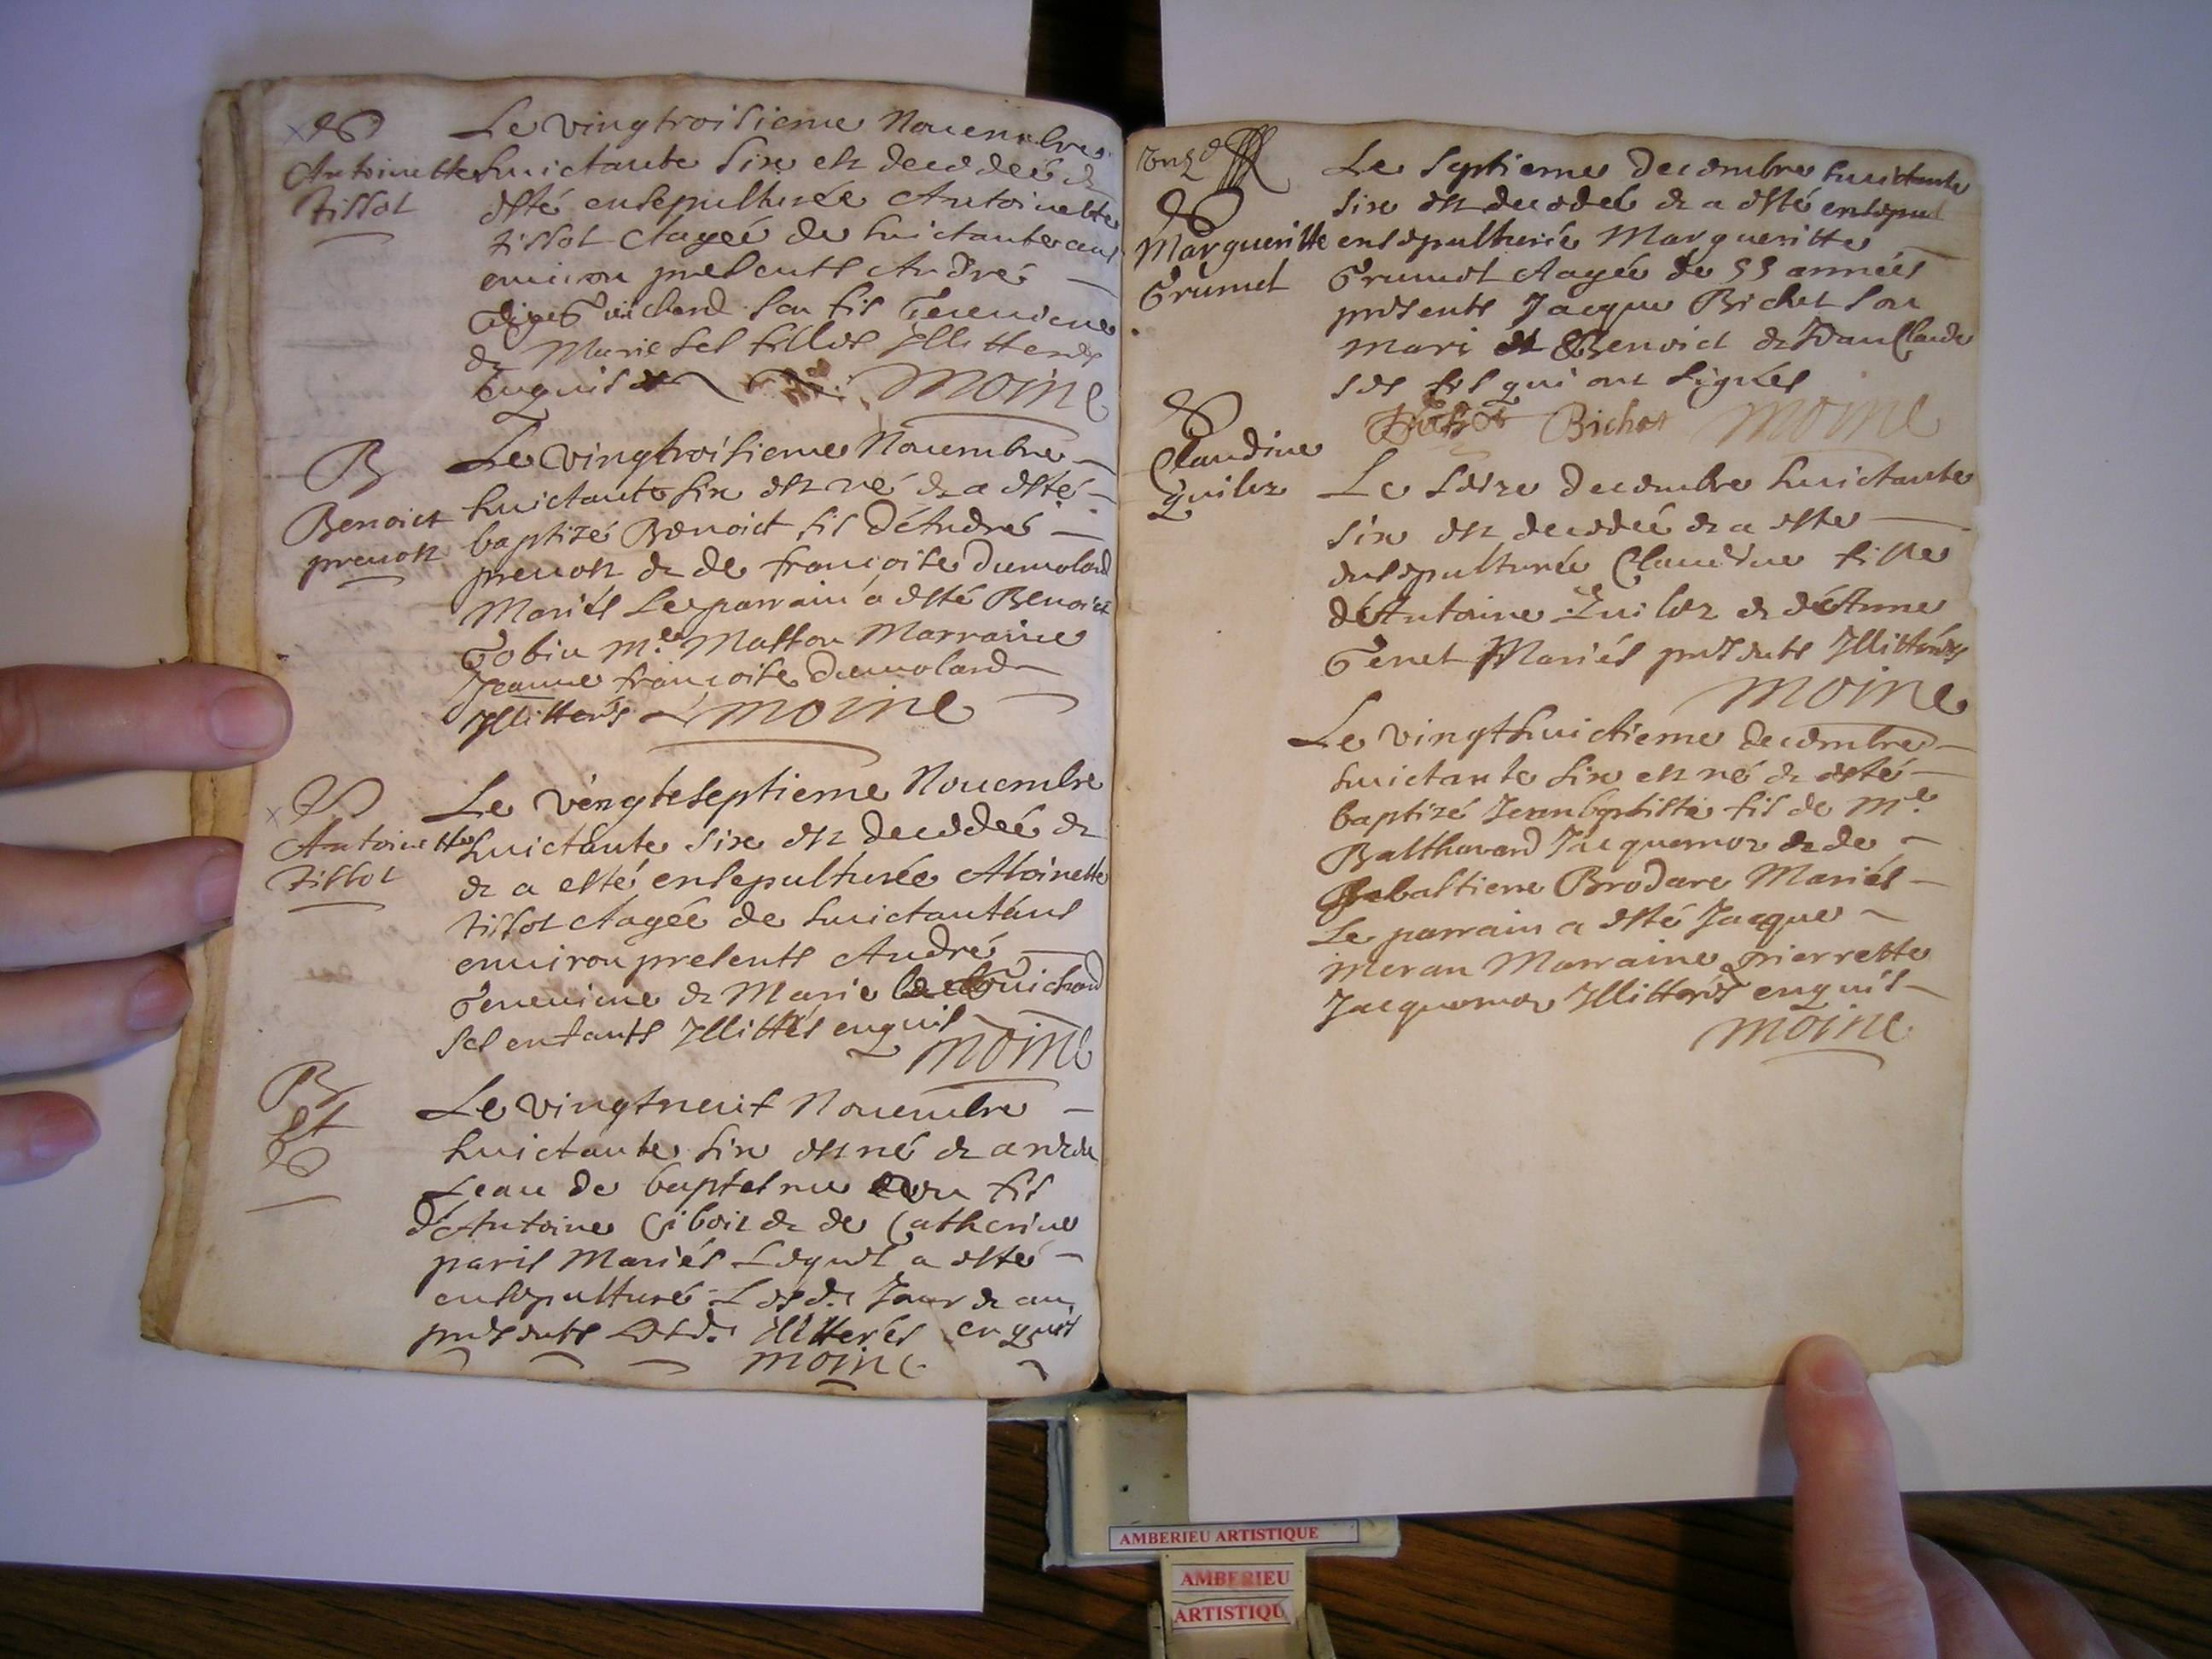 Antoinette
tissot
Le vingtroisieme Novembre
huictante six est decedeé &
esté ensepulturée Antoinette
tissot Aagée de huictante ans
environ presents André
Guichard son fis Genevieve
& Marie ses filles Illitterés
enquis Moine
B
Benoict
prevost
Le vingtroisieme Novembre
huictante six est né & a esté
baptizé Benoict fis d'André
prevost & de françoise Dumolard
Mariés Le parrain a esté Benoict
Gobin Me Masson Marraine
Jeanne françoise Dumolard
Illitterés Moine
Antoinette
tissot
Le vingteseptieme Novembre
huictante six est decedeé &
& a esté ensepulturée Atoinette
tissot Aagée de huictantans
environ presents André
Genevieve & Marie Guichard
ses enfants Illittés enquis
Moine
B
et
Le vingtneuf Novembre
huictante six est né & a
Leau de baptesme un fis
d'Antoine Ciboit & de Catherine
paris Mariés Lequel a esté
ensepulturé Lesd. Jour & an
presents Lesd. illiterés enquis
moine
Margueritte
Grumet
Le septieme Decembre huictante
six est decedeé & a esté ensepul
ensepulturée Margueritte
Grumet Aagée de 55 années
presents Jacque Bichet son
mari et Benoict & JeanClaude
ses fis qui ont signés
Bichet Moine
Claudine
quiler
Le seize Decembre huictante
six est decedeé & a este
ensepulturée Claudine fille
d'Antoine Quiler & d'Anne
Genet Mariés presents Illitterés
Moine
Le vingthuictieme decembre
huictante six est né & esté
baptizé Jeanbaptiste fis de Me
Balthazard Jacquemor & de
Sebastiene Brodare Mariés
Le parrain a esté Jacque
Meran Marraine pierrette
Jacquemor Illitterés enquis
Moine
AMBERIEU ARTISTIQUE
AMBERIEU
ARTISTIQU